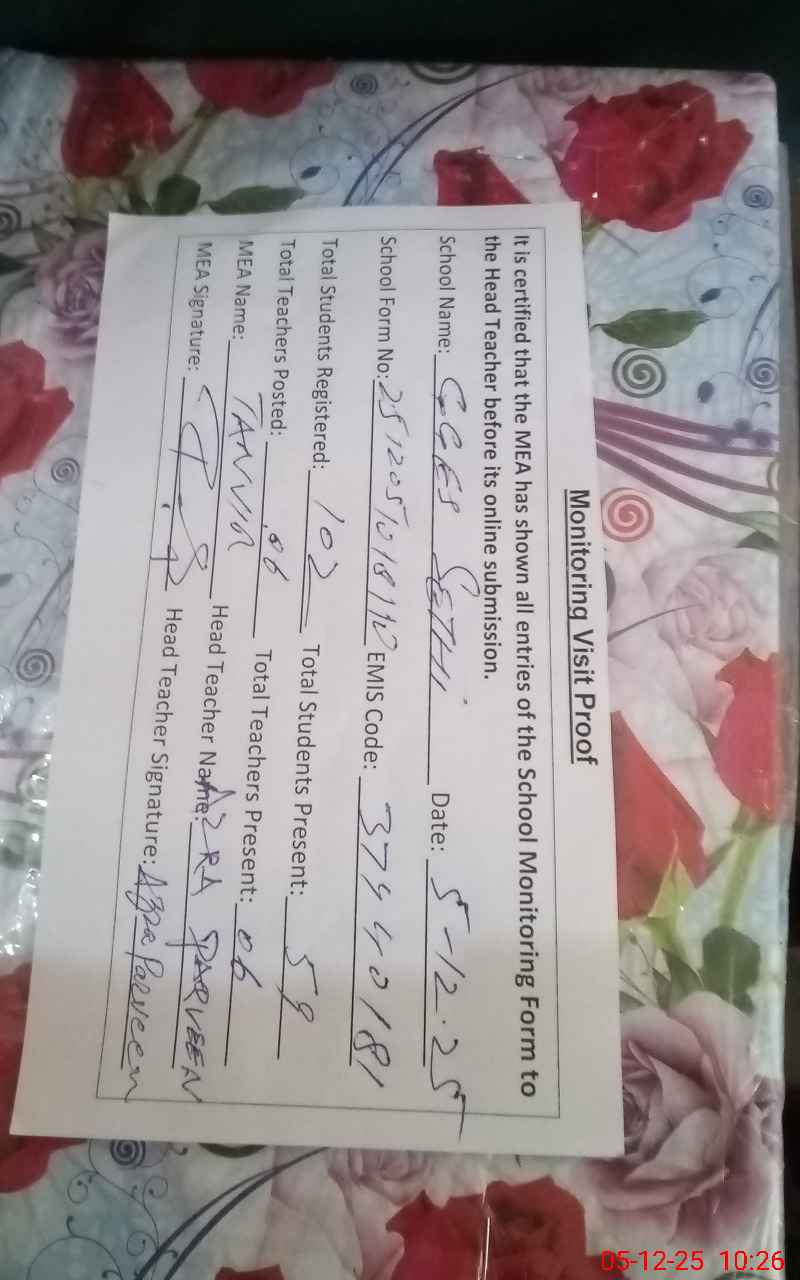 Monitoring Visit Proof
It is certified that the MEA has shown all entries of the School Monitoring Form to
the Head Teacher before its online submission.
School Name: GGES SETHI Date: 5-12-25
School Form No: 251205101811 EMIS Code: 37440181
Total Students Registered: 102 Total Students Present: 59
Total Teachers Posted: 06 Total Teachers Present: 06
MEA Name: TANVIR Head Teacher Name: AZRA PARVEEN
MEA Signature: Head Teacher Signature: Azra Parveen
05-12-25 10:26